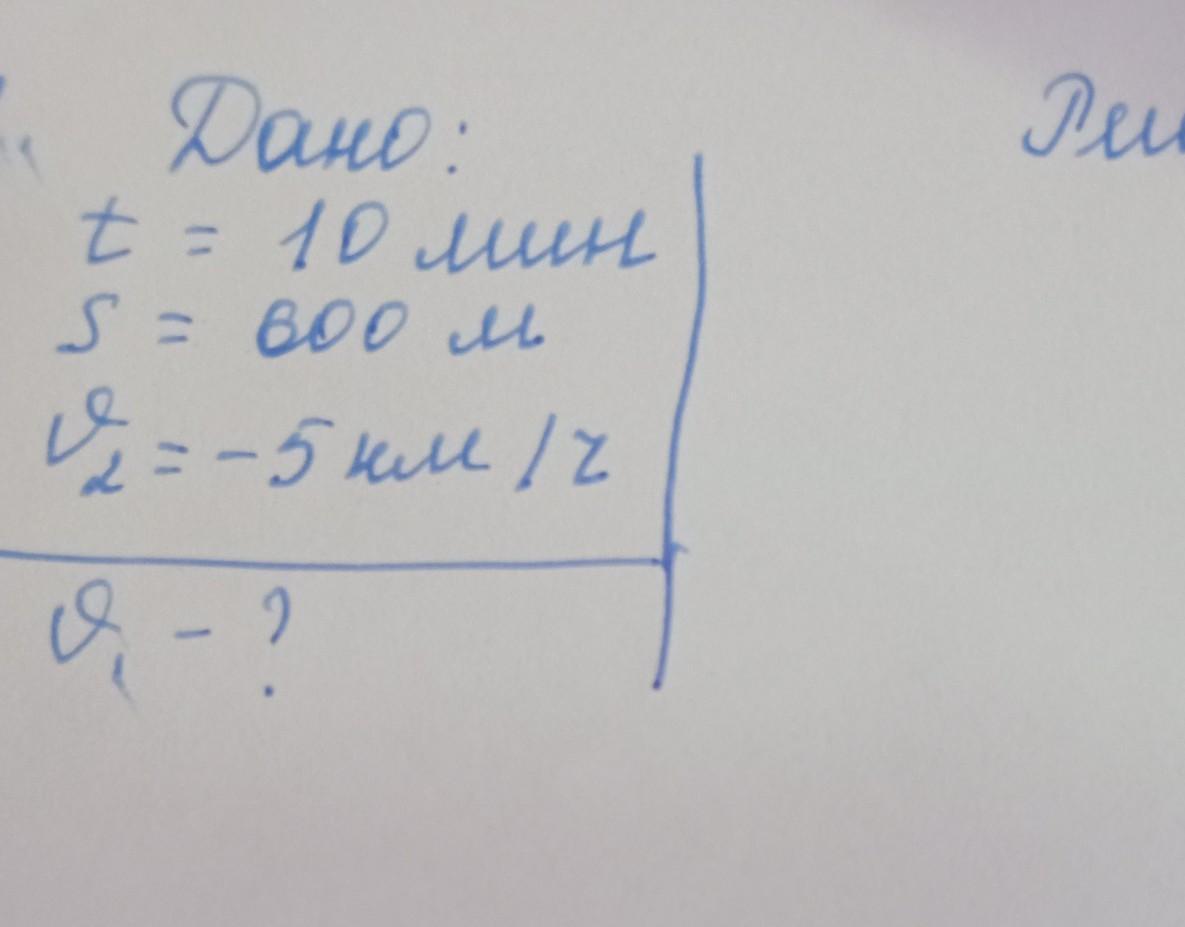 Дано:
t = 10 мин
S = 600 м
υ₂ = -5 км/ч
υ₁ - ?